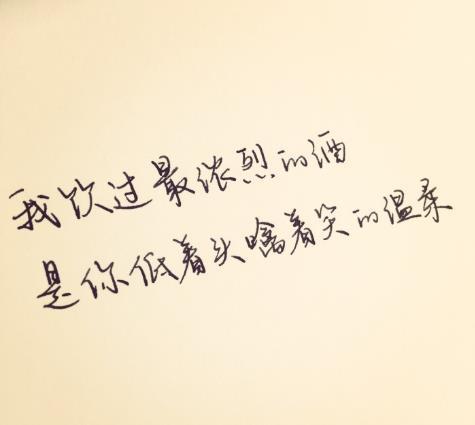 我饮过最浓烈的酒
是你低着头噙着笑的温柔